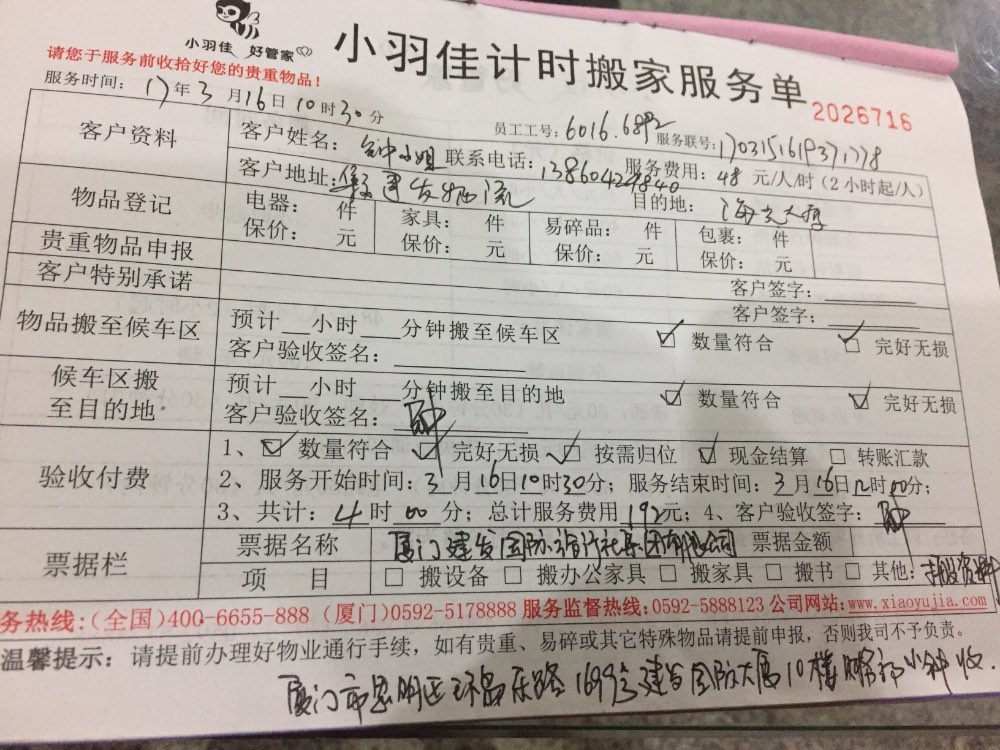 小羽佳 好管家
小羽佳计时搬家服务单
请您于服务前收拾好您的贵重物品!
2026716
服务时间: 17年3月16日10时30分
员工工号: 6016.6892 服务联号: 1703151619371778
客户资料
客户姓名: 钟小姐 联系电话: 服务费用: 48 元/人/时(2小时起/人)
客户地址: 建发物流 目的地:
物品登记
电器: 件 家具: 件 易碎品: 件 包裹: 件
保价: 元 保价: 元 保价: 元 保价: 元
贵重物品申报 客户签字:
客户特别承诺 客户签字:
物品搬至候车区
预计 小时 分钟搬至候车区 ☑ 数量符合 ☑ 完好无损
客户验收签名:
候车区搬至目的地
预计 小时 分钟搬至目的地 ☑ 数量符合 ☑ 完好无损
客户验收签名: 钟
验收付费
1、☑ 数量符合 ☑ 完好无损 ☑ 按需归位 ☑ 现金结算 □ 转账汇款
2、服务开始时间: 3月16日10时30分; 服务结束时间: 3月16日12时00分;
3、共计: 4时00分; 总计服务费用192元; 4、客户验收签字: 钟
票据栏
票据名称 厦门建发国际旅行社集团有限公司 票据金额
项 目 □ 搬设备 □ 搬办公家具 □ 搬家具 □ 搬书 □ 其他: 搬资料
务热线:(全国)400-6655-888 (厦门)0592-5178888 服务监督热线:0592-5888123 公司网站:www.xiaoyujia.com
温馨提示: 请提前办理好物业通行手续, 如有贵重、易碎或其它特殊物品请提前申报, 否则我司不予负责。
厦门市思明区环岛东路1699号建发国际大厦10楼 小钟收.